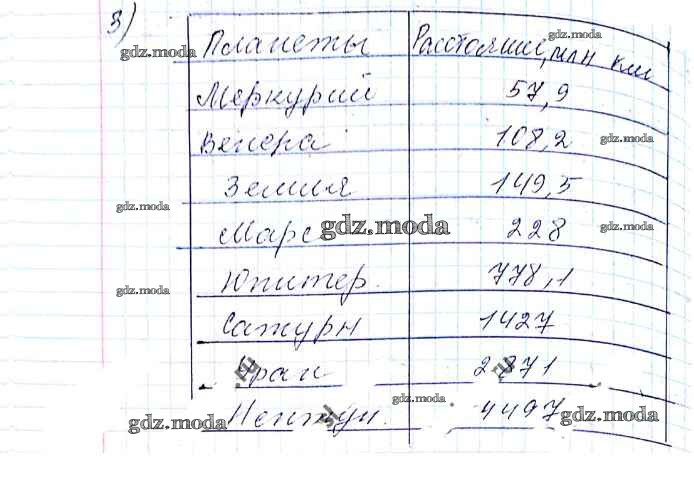 3)
Планеты Расстояние, млн км
Меркурий 57,9
Венера 108,2
Земля 149,5
Марс 228
Юпитер 778,1
Сатурн 1427
Уран 2871
Нептун 4497
gdz.moda
gdz.moda
gdz.moda
gdz.moda
gdz.moda
gdz.moda
gdz.moda
gdz.moda
gdz.moda
gdz.moda
gdz.moda
gdz.moda